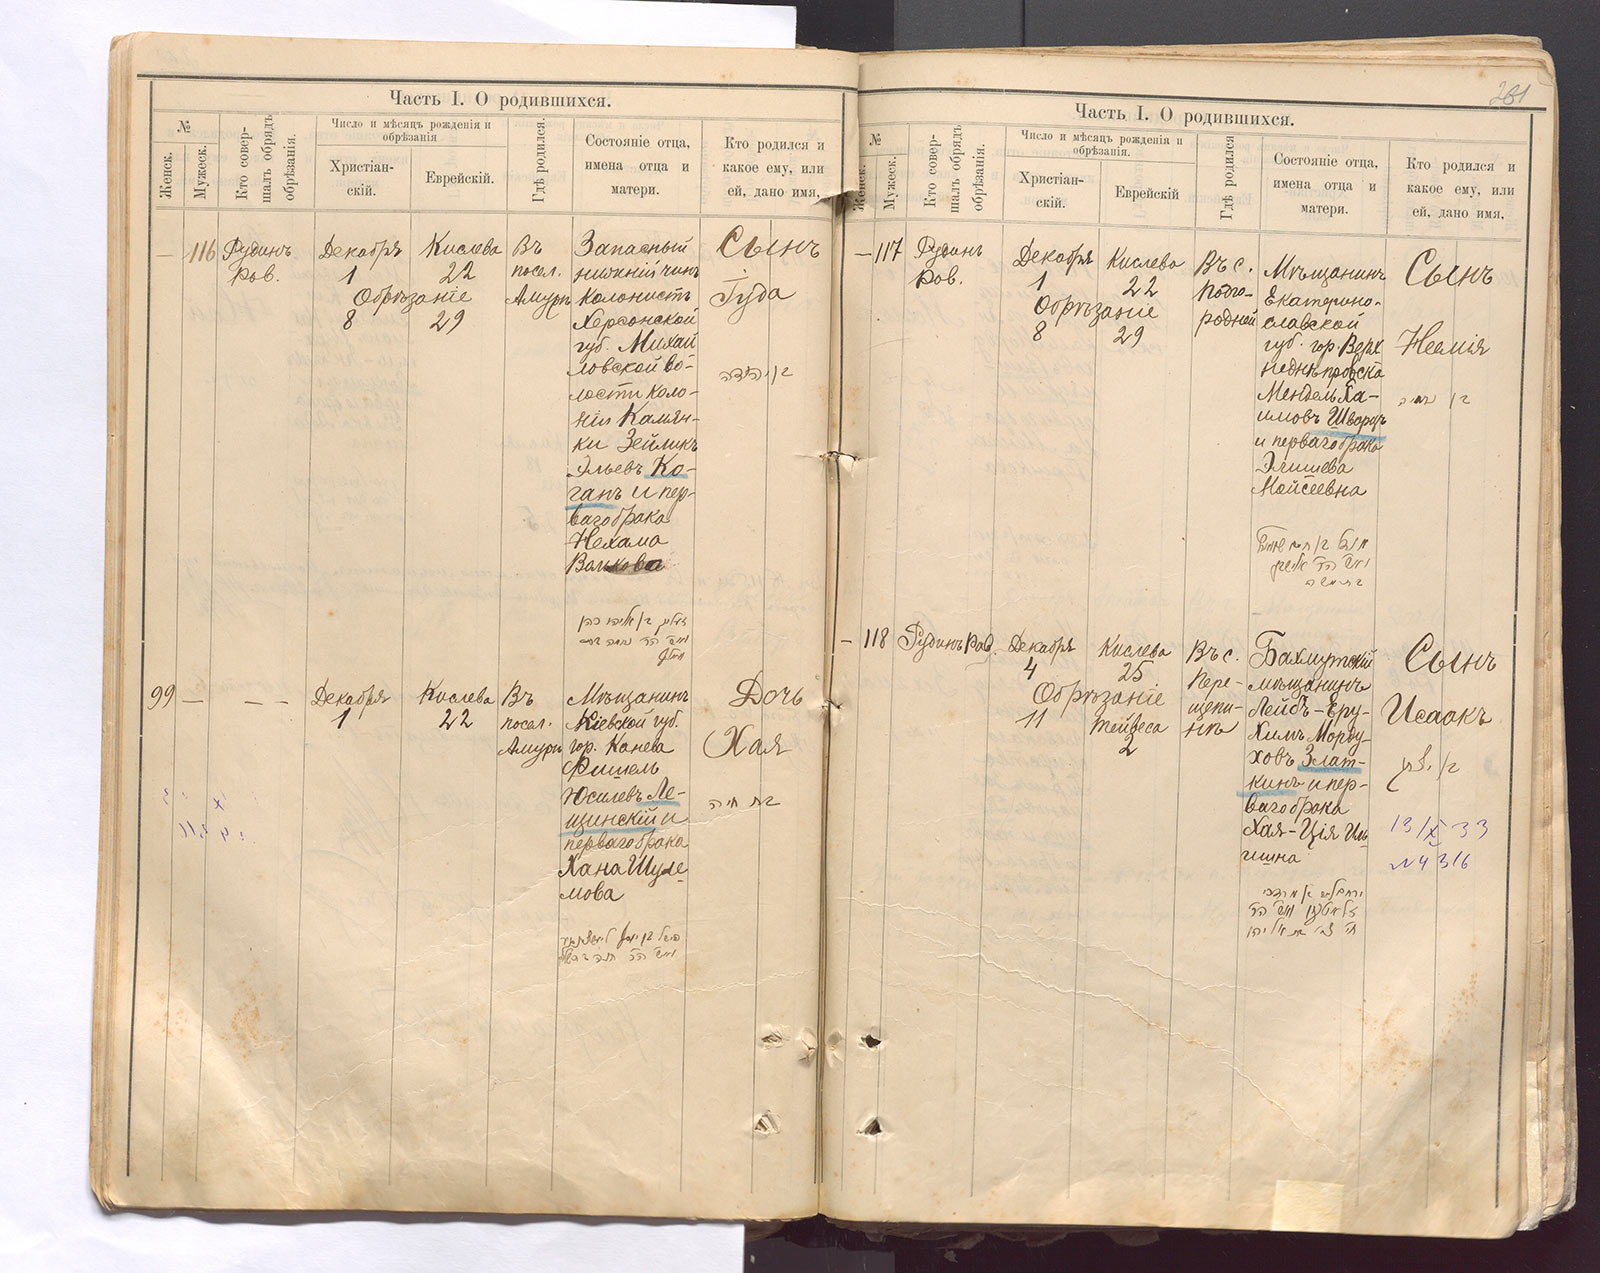 Часть I. О родившихся.
№
Женск.
Мужеск.
Кто совер-
шалъ обрядъ
обрѣзанія.
Число и мѣсяцъ рожденія и
обрѣзанія
Христіан-
скій.
Еврейскій.
Гдѣ родился.
Состояніе отца,
имена отца и
матери.
Кто родился и
какое ему, или
ей, дано имя.
— 116
Рудинъ
Ров.
Декабря
1
Кислева
22
Обрѣзаніе
8
29
Въ
посел.
Амуръ
Запасный
нижній чинъ
Колонистъ
Херсонской
губ. Михай
ловской во-
лости коло-
ніи Камян-
ки Зейликъ
Эльевъ Ко-
ганъ и пер-
ваго брака
Нехама
Сынъ
Іуда
בן יהודה
99 —
— —
Декабря
1
Кислева
22
Въ
посел.
Амуръ
Мѣщанинъ
Кіевской губ.
гор. Канева
Фишель
Юсилевъ Ле-
щинскій и
перваго брака
Хана Шуле-
мова
Дочь
Хая
בת חיה
261
Часть I. О родившихся.
№
Женск.
Мужеск.
Кто совер-
шалъ обрядъ
обрѣзанія.
Число и мѣсяцъ рожденія и
обрѣзанія.
Христіан-
скій.
Еврейскій
Гдѣ родился
Состояніе отца,
имена отца и
матери.
Кто родился и
какое ему, или
ей, дано имя.
— 117
Рудинъ
Ров.
Декабря
1
Кислева
22
Обрѣзаніе
8
29
Въ с.
Подго-
родной
Мѣщанинъ
Екатерино-
славской
губ. гор. Верх
неднѣпровска
Мендель Ха-
имовъ Шварцъ
и перваго брака
Элишева
Мойсеевна
Сынъ
Нехемія
— 118
Рудинъ Рав.
Декабря
4
Кислева
25
Обрѣзаніе
11
Тейвеса
2
Въ с.
Пере-
щепи-
нѣ
Бахмутскій
мѣщанинъ
Лейбъ-Еру-
химъ Морду-
ховъ Злат-
кинъ и пер-
ваго брака
Хая-Ція Иль
Сынъ
Исаакъ
בן יצחק
13/X 33
№4316